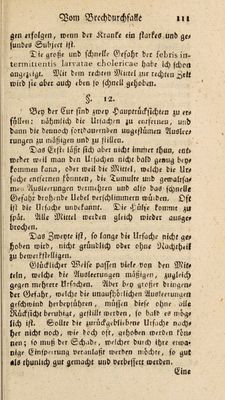 Vom Brechdurchfalle 111
gen erfolgen, wenn der Kranke ein starkes und ge-
sundes Subject ist.
Die große und schnelle Gefahr der febris in-
termittentis larvatae cholericae habe ich schon
angezeigt. Mit dem rechten Mittel zur rechten Zeit
wird sie aber auch eben so schnell gehoben.
§. 12.
Bey der Cur sind zwey Hauptrücksichten zu er-
füllen: nähmlich die Ursachen zu entfernen, und
dann die dennoch fortdauernden ungestümen Auslee-
rungen zu mäßigen und zu stillen.
Das Erste läßt sich aber nicht immer thun, ent-
weder weil man den Ursachen nicht bald genug bey-
kommen kann, oder weil die Mittel, welche die Ur-
sache entfernen können, die Tumulte und gewaltsa-
men Ausleerungen vermehren und also das schnelle
Gefahr drohende Uebel verschlimmern würden. Oft
ist die Ursache unbekannt. Die Hülfe kömmt zu
spät. Alle Mittel werden gleich wieder ausge-
brochen.
Das Zweyte ist, so lange die Ursache nicht ge-
hoben wird, nicht gründlich oder ohne Nachtheil
zu bewerkstelligen.
Glücklicher Weise passen viele von den Mit-
teln, welche die Ausleerungen mäßigen, zugleich
gegen mehrere Ursachen. Aber bey großer dringen-
der Gefahr, welche die unaufhörlichen Ausleerungen
geschwind herbeyführen, müssen diese ohne alle
Rücksicht beruhigt, gestillt werden, so bald es mög-
lich ist. Sollte die zurückgebliebene Ursache nach-
her nicht noch, wie doch oft, gehoben werden
können; so muß der Schade, welcher durch ihre et-
wanige Einsperrung veranlaßt werden möchte, so gut
als thunlich gut gemacht und verbessert werden.
Eine